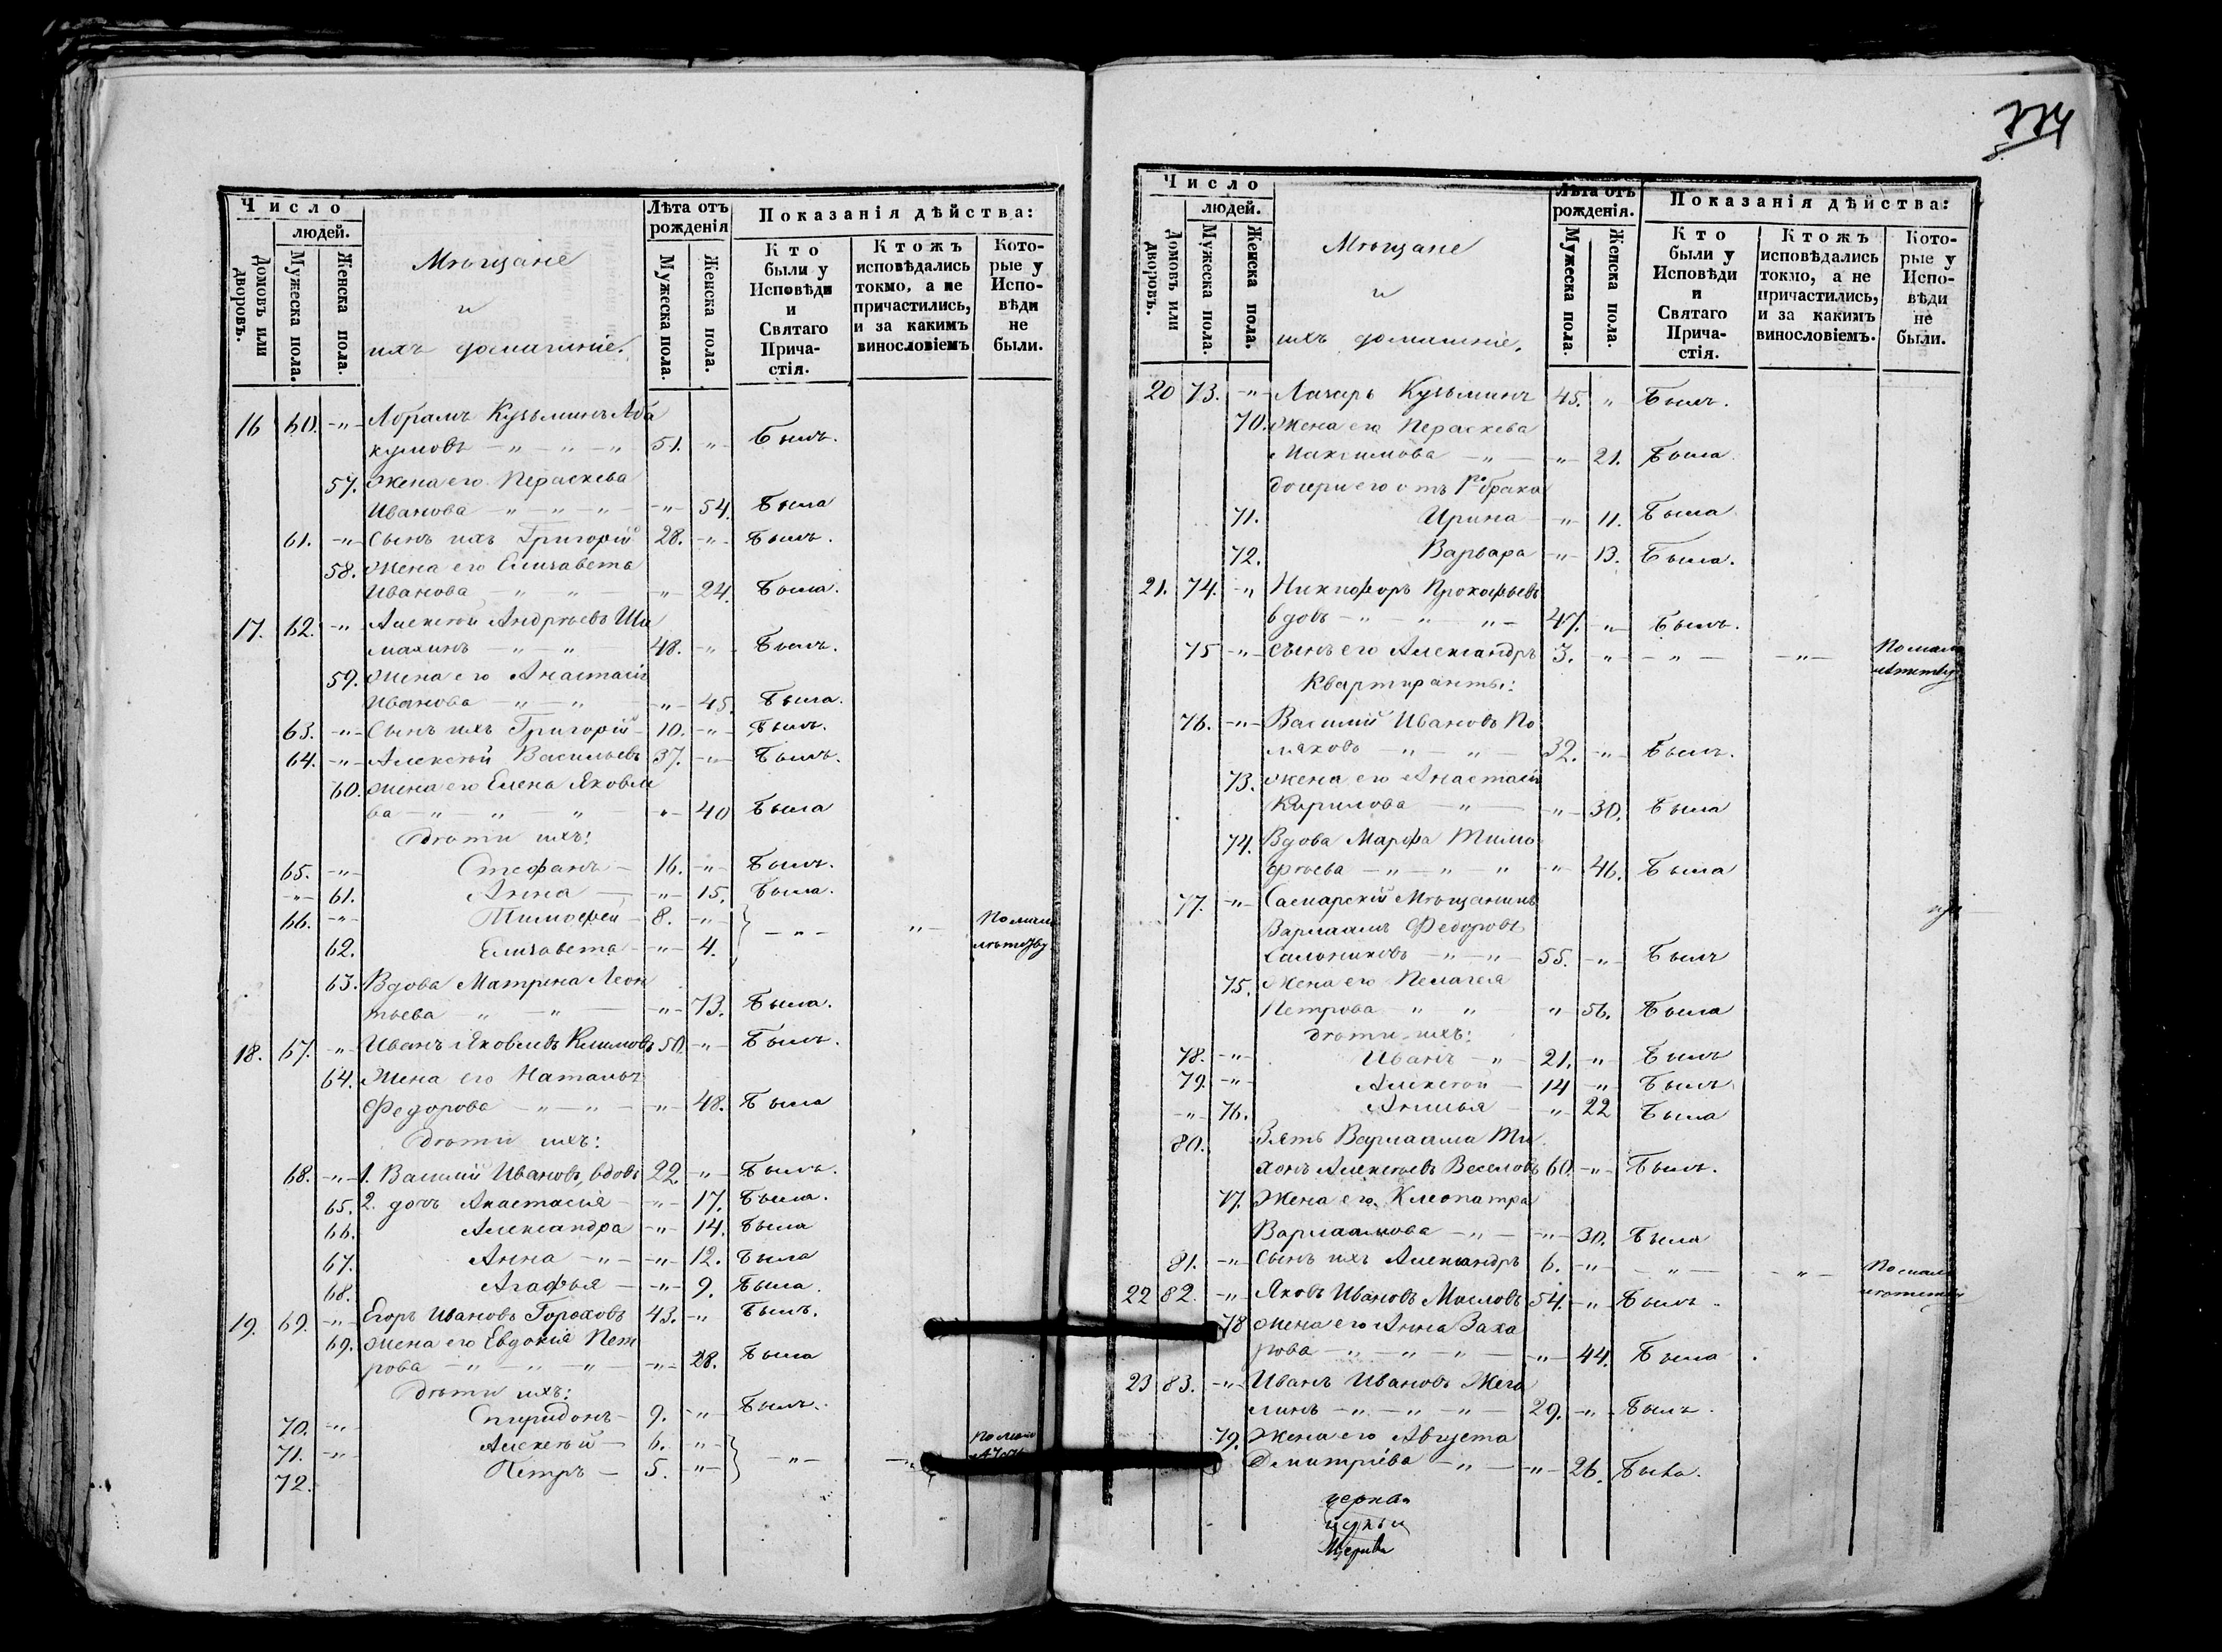 774
Число
людей.
Домовъ или дворовъ.
Мужеска пола.
Женска пола.
Мѣщане
и
ихъ домашніе.
Лѣта отъ рожденія
Мужеска пола.
Женска пола.
Показанія дѣйства:
Кто были у Исповѣди и Святаго Прича-стія.
Ктожъ исповѣдались токмо, а не причастились, и за какимъ винословіемъ
Кото-рые у Испо-вѣди не были.
16 60. -„- Абрамъ Кузьминъ Аба
кумовъ -„-„-„ 51. -„- Былъ.
57. Жена его Пераскева
Иванова -„-„-„- -„- 54. Была
61. -„- Сынъ ихъ Григорій 28. -„- Былъ.
58. Жена его Елизавета
Иванова -„- 24. Была.
17. 62. -„ Алексѣй Андреевъ Ши
махинъ -„-„- 48. -„- Былъ.
59. Жена его Анастасія
Иванова -„-„- -„- 45. Была.
63. -„- Сынъ ихъ Григорій 10. -„- Былъ.
64. -„- Алексѣй Васильевъ 37. -„- Былъ.
60. Жена его Елена Яковле
ва -„-„-„ -„- 40 Была
Дѣти ихъ:
65. -„- Стефанъ 16. -„- Былъ.
-„- 61. Анна -„- 15. Была.
66. -„- Тимофей 8. -„- -„- „- По мало
62. Елизавета -„- 4. лѣтству
63. Вдова Матрена Леон
тьева -„-„- -„- 73. Была.
18. 67. -„ Иванъ Яковлевъ Климовъ 50. -„- Былъ.
64. Жена его Наталья
Федорова -„-„- -„- 48. Была
Дѣти ихъ:
68. -„- 1. Василій Ивановъ, вдовъ 22 -„- Былъ.
65. 2. дочь Анастасія -„- 17. Была.
66. Александра -„- 14. Была
67. Анна -„- -„- 12. Была
68. Агафья -„- 9. Была.
19. 69. -„- Егоръ Ивановъ Гороховъ 43. -„ Былъ.
69. Жена его Евдокія Пет
рова -„-„-„- -„- 28. Была
Дѣти ихъ:
70. -„- Спиридонъ 9. -„- Былъ.
71. -„- Алексѣй 6. -„- -„- -„- По мало
72. Петръ 5. -„-
Число
людей.
Домовъ или дворовъ.
Мужеска пола.
Женска пола.
Мѣщане
и
ихъ домашніе.
Лѣта отъ рожденія.
Мужеска пола.
Женска пола.
Показанія дѣйства:
Кто были у Исповѣди и Святаго Прича-стія.
Ктожъ исповѣдались токмо, а не причастились, и за какимъ винословіемъ.
Кото-рые у Испо-вѣди не были.
20 73. -„- Лазарь Кузьминъ 45. „ Былъ.
70. Жена его Пераскева
Максимова -„- -„- 21. Была.
дочери его отъ 1го брака
71. Ирина -„- 11. Была
72. Варвара -„- 13. Была.
21. 74. -„ Никифоръ Прокофьевъ
вдовъ -„-„-„- 47. -„- Былъ.
75 -„- Сынъ его Александръ 3. -„- -„- -„- По мало
лѣтству
Квартиранты:
76. -„- Василій Ивановъ По
ляковъ -„-„- 32. -„- Былъ.
73. Жена его Анастасія
Кирилова -„- -„- 30. Была
74. Вдова Марфа Тимо
фѣева -„-„-„ -„- 46. Была
77. -„- Самарскій Мѣщанинъ
Варлаамъ Федоровъ
Сапожниковъ -„-„- 55. -„- Былъ
75. Жена его Пелагея
Петрова „ „ „ 56. Была
дѣти ихъ:
78. -„- Иванъ -„ 21. -„ Былъ
79. -„- Алексѣй 14 -„- Былъ
-„- 76. Анисья -„- 22 Была
80. Зять Варлаама Ти
хонъ Алексѣевъ Веселовъ 60. -„- Былъ.
77. Жена его Клеопатра
Варлаамова -„- -„- 30. Была
81. -„- Сынъ ихъ Александръ 6. -„- -„- -„- По мало
лѣтству
22 82. -„ Яковъ Ивановъ Масловъ 54. -„ Былъ.
78 Жена его Анна Заха
рова -„-„-„- -„- 44. Была
23 83. -„- Иванъ Ивановъ Жега
линъ -„-„-„- 29. -„- Былъ.
79. Жена его Августа
Дмитріева -„- -„- 26. Была.